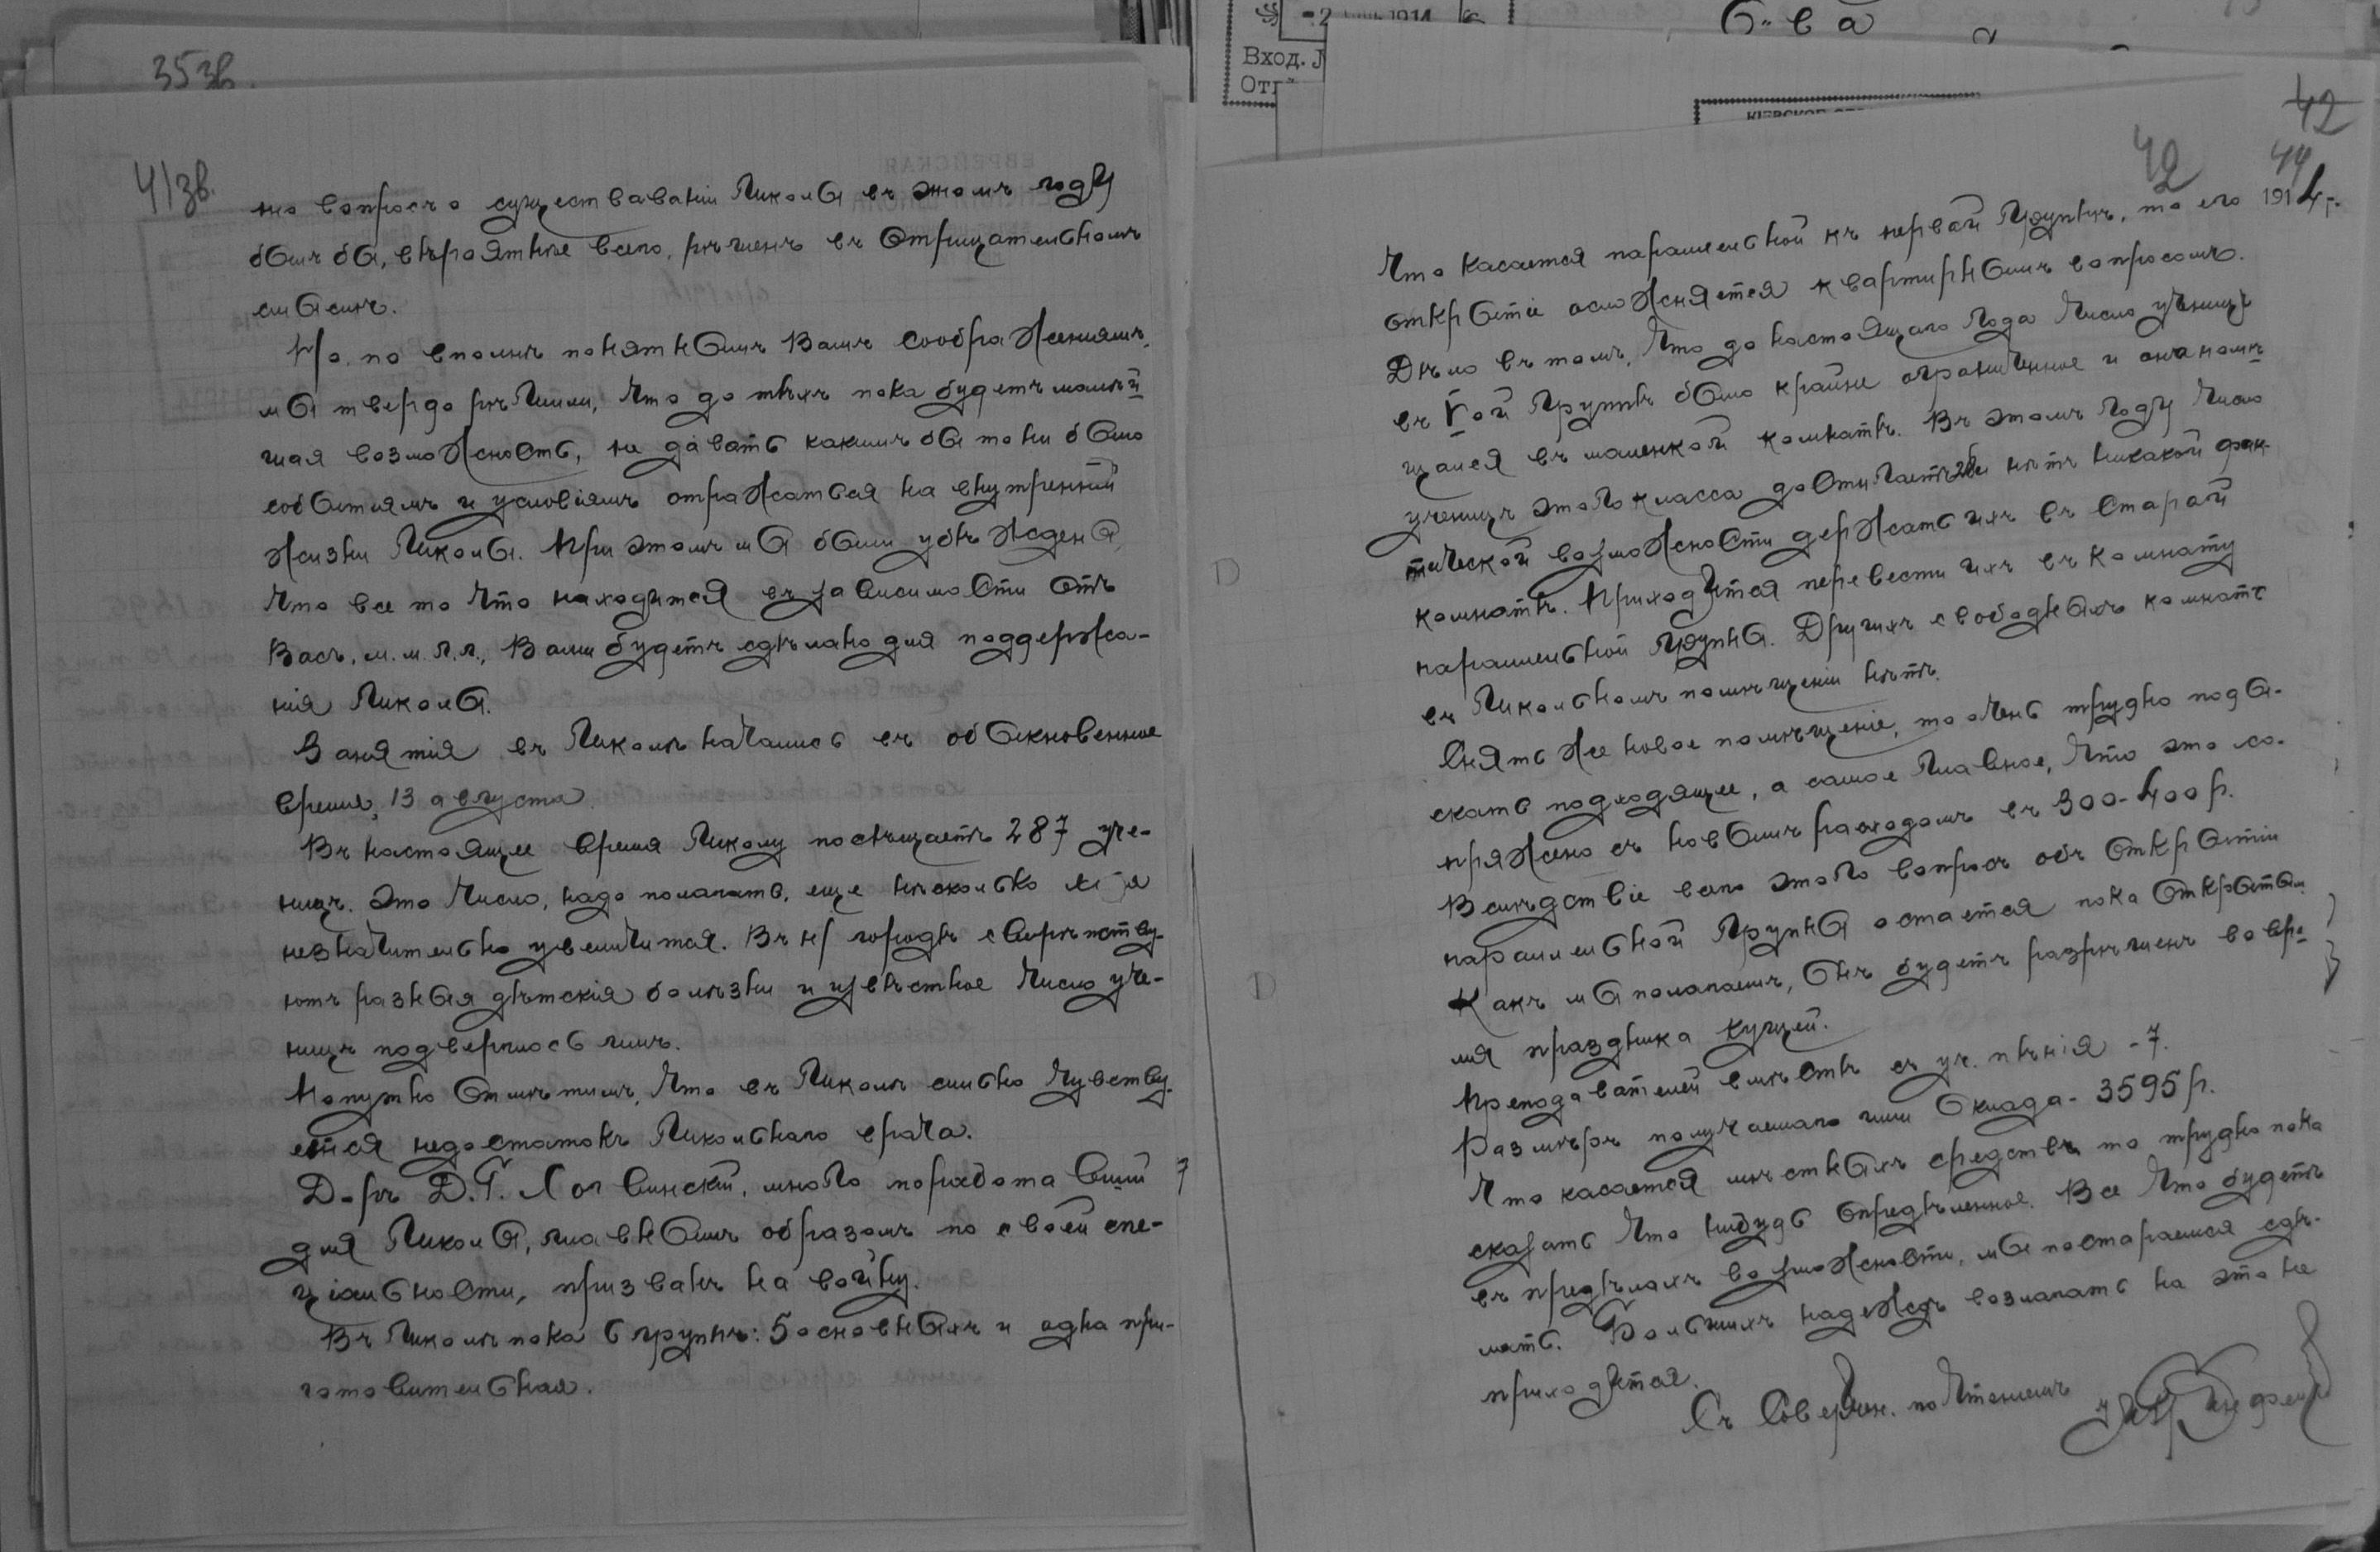 353в.
41зв.
но вопросъ о существованіи школы въ этомъ году
былъ бы, вѣроятнѣе всего, рѣшенъ въ отрицательномъ
смыслѣ.
Но, по вполнѣ понятнымъ Вамъ соображеніямъ,
мы твердо рѣшили, что до тѣхъ пока будетъ малѣй
шая возможность, не давать какимъ бы то ни было
событіямъ и условіямъ отражаться на внутренній
жизни школы. При этомъ мы были убѣждены,
что все то что находится въ зависимости отъ
Васъ, м. м. г. г., Вами будетъ сдѣлано для поддержа-
нія школы.
Занятія въ школѣ начались въ обыкновенное
время, 13 августа.
Въ настоящее время школу посѣщаетъ 287 уче-
ницъ. Это число, надо полагать, еще нѣсколько
незначительно увеличится. Въ н/ городѣ свирѣпству-
ютъ разныя дѣтскія болѣзни и извѣстное число уче-
ницъ подверглось имъ.
Попутно отмѣтимъ, что въ школѣ сильно чувству-
ется недостатокъ школьнаго врача.
Д-ръ Д. Г. Логвинскій, много поработавшій
для школы, главнымъ образомъ по своей спе-
ціальности, призванъ на войну.
Въ школѣ пока 6 группъ: 5 основныхъ и одна при-
готовительная.
-2 1914
Вход. №
Отг
КІЕВСКОЕ
42
42 44
1914 г.
Что касается параллельной къ первой группѣ, то его
открытіе осложняется квартирнымъ вопросомъ.
Дѣло въ томъ, что до настоящаго года число ученицъ
въ I-ой группѣ было крайне ограниченное и она помѣ
щалася въ маленкой комнатѣ. Въ этомъ году число
ученицъ этого класса достигаетъ и нѣтъ никакой фак-
тической возможности держать ихъ въ старой
комнатѣ. Приходится перевести ихъ въ комнату
параллельной группы. Другихъ свободныхъ комнатъ
въ школьномъ помѣщеніи нѣтъ.
Снять же новое помѣщеніе, то очень трудно поды-
скать подходящее, а самое главное, что это со-
пряжено съ новымъ расходомъ въ 300-400 р.
Вслѣдствіе всего этого вопросъ объ открытіи
параллельной группы остается пока открытым.
Какъ мы полагаемъ, онъ будетъ разрѣшенъ во вре
мя праздника кущей.
Преподавателей вмѣстѣ съ уч. пѣнія - 7.
Размѣръ получаемаго ими оклада - 3595 р.
Что касается мѣстныхъ средствъ, то трудно пока
сказать что нибудь опредѣленное. Все что будетъ
въ предѣлахъ возможности, мы постараемся сдѣ-
лать. Большихъ надеждъ возлагать на это не
приходится.
Съ Соверщен. почтеніемъ